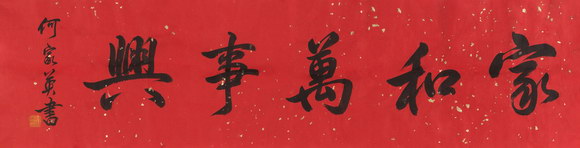 家和萬事興
何家英書